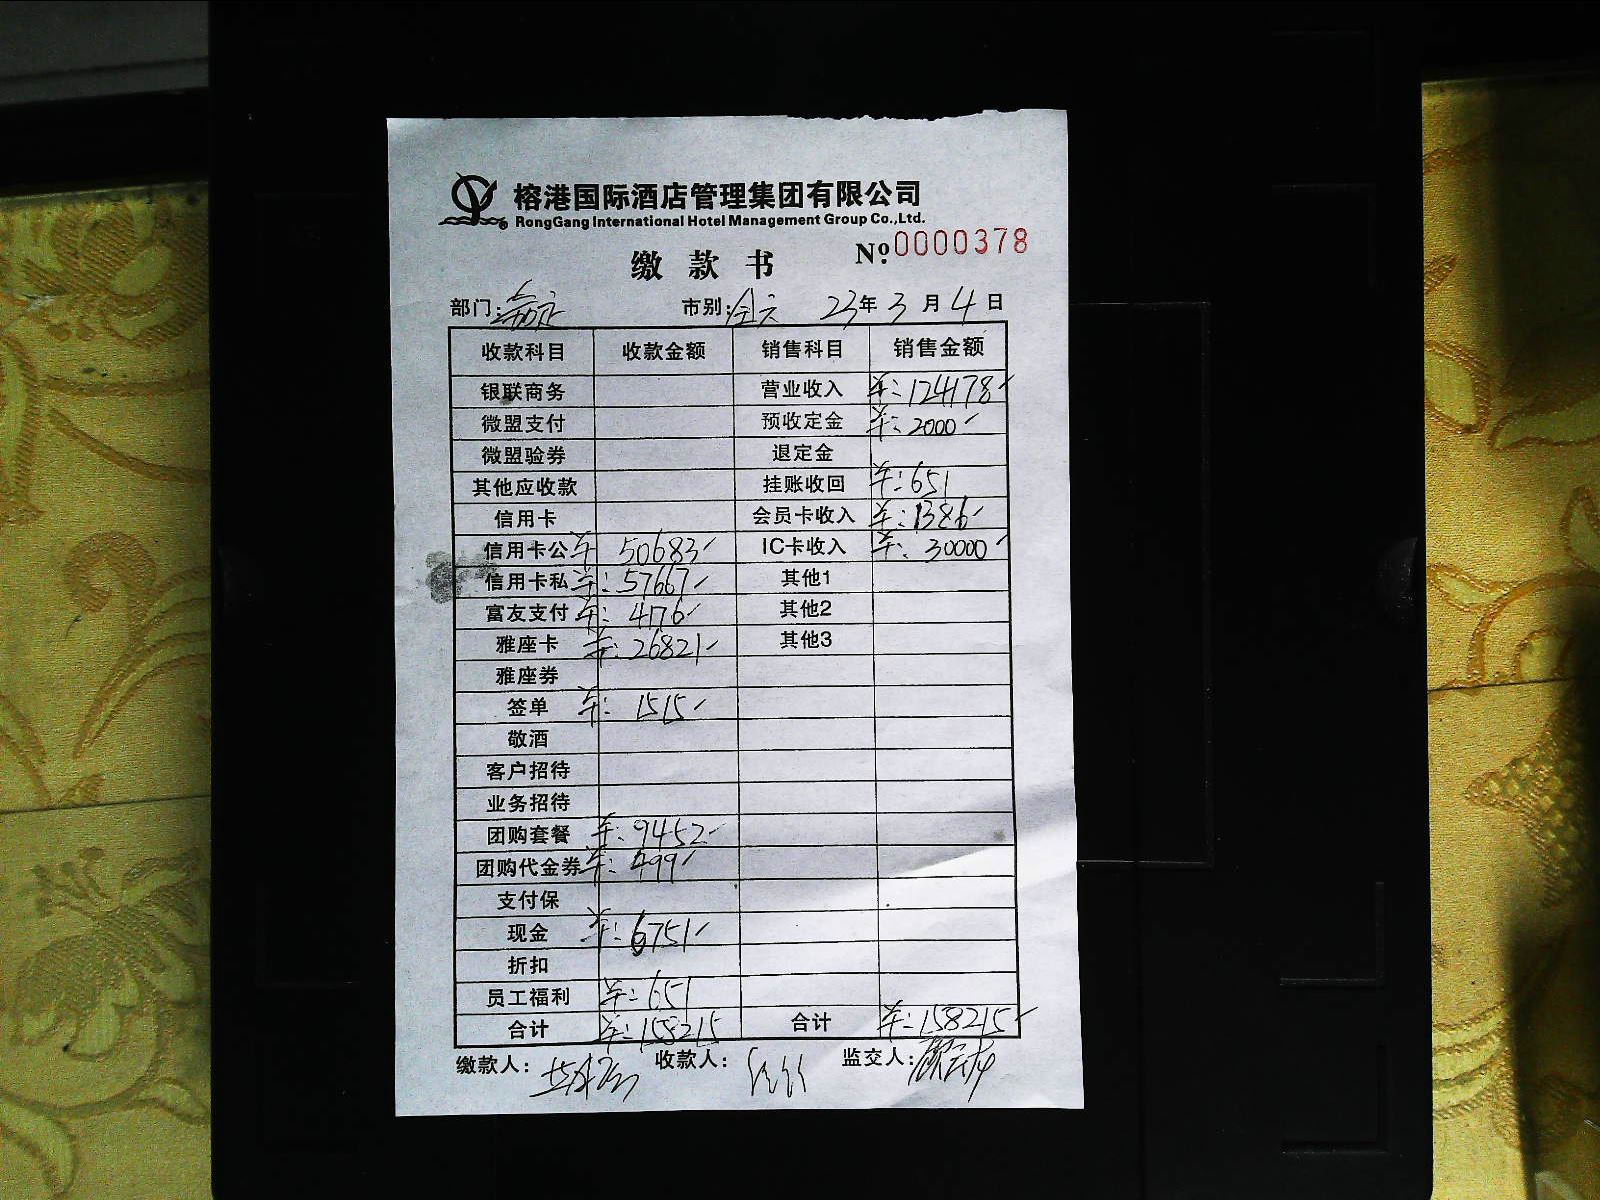 榕港国际酒店管理集团有限公司
RongGang International Hotel Management Group Co.,Ltd.
缴款书 №0000378
部门: 市别: 23年3月4日
收款科目 收款金额 销售科目 销售金额
银联商务 营业收入 ¥:124178
微盟支付 预收定金 ¥:2000
微盟验券 退定金
其他应收款 挂账收回 ¥:651
信用卡 会员卡收入 ¥:1386
信用卡公 ¥ 50683 IC卡收入 ¥:30000
信用卡私 ¥:57667 其他1
富友支付 ¥:4176 其他2
雅座卡 ¥:26821 其他3
雅座券
签单 ¥:1515
敬酒
客户招待
业务招待
团购套餐 ¥:9452
团购代金券 ¥:499
支付保
现金 ¥:6751
折扣
员工福利 ¥:651
合计 ¥:158215 合计 ¥:158215
缴款人: 收款人: 监交人: